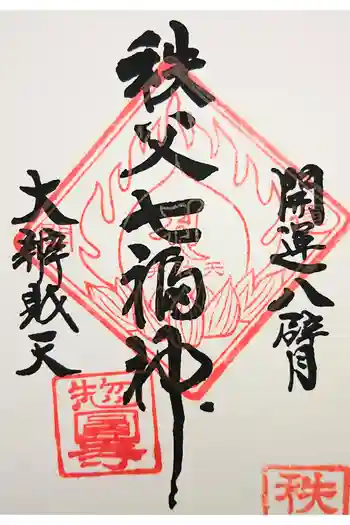 開運八臂
秩父七福神
大辨財天
秩